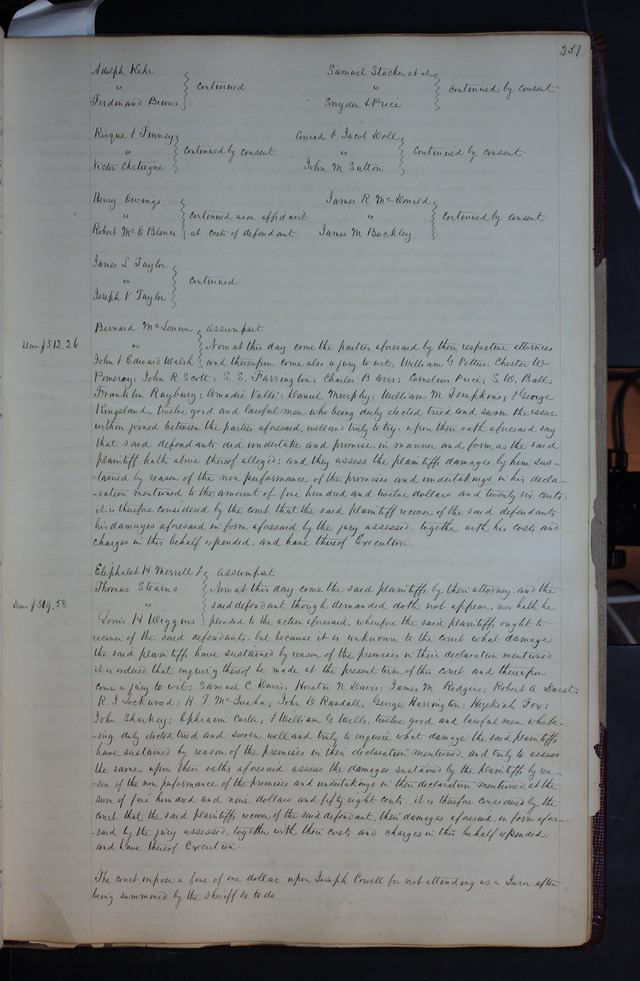 257
Adolph Kehr
" continued
Ferdinand Bruns
Samuel Stacker et al
" continued by consent
Snyder & Price
Risque & Tinney
" continued by consent
Victor Chetaigne
Conrad & Jacob Doll
" Continued by consent
John M Sutton
Henry Owings
" continued upon affidavit
Robert Mc O Blenis at costs of defendant
James R McDonald
" Continued by consent
James M Buckley
James S Taylor
" continued
Joseph V Taylor
Bernard McLenon assumpsit
Dam $512.26 " Now at this day come the parties aforesaid by their respective attornies
John & Edward Walsh and thereupon come also a jury to wit; William G Pettus; Chester W
Pomeroy; John R Scott; S. S. Farrington; Charles B avis; Cornelius Price; S. W. Ball;
Franklin Rayburg; Amadie Valli; Daniel Murphy; William M Tomphkins; & George
Kingsland, twelve good and lawful men who being duly elected tried and sworn the issue
within joined between the parties aforesaid, well and truly to try, upon their oath aforesaid say
that said defendants did undertake and promise in manner and form as the said
plaintiff hath above thereof alleged; and they assess the plaintiffs damages by him sus-
-tained by reason of the non performance of the promises and undertakings in his decla-
-ration mentioned to the amount of five hundred and twelve dollars and twenty six cents.
it is therefore considered by the court that the said plaintiff recover of the said defendants
his damages aforesaid in form aforesaid by the jury assessed together with his costs and
charges in this behalf expended, and have thereof Execution.
Eliphalet H Merrell & assumpsit
Thomas Stearns Now at this day come the said plaintiffs by their attorney, and the
Dam $509.58 " said defendant though demanded doth not appear, nor hath he
Louis H Wiggins pleaded to the action aforesaid, wherefore the said plaintiffs ought to
recover of the said defendants, but because it is unknown to the court what damage
the said plaintiffs have sustained by reason of the premises in their declaration mentioned
it is ordered that enquiry thereof be made at the present term of this court and thereupon
come a jury to wit; Samuel C Davis; Horatio N Davis; James M Rodgers; Robert A Barst
R. J Lockwood; John D Randall; George Harrington; Hezekiah Fox;
John Sharkey; Ephraim Carter, & William G Wells, twelve good and lawful men who be-
-ing duly elected tried and sworn well and truly to enquire what damage the said plaintiffs
have sustained by reason of the premises in their declaration mentioned, and truly to assess
the same, upon their oaths aforesaid assess the damages sustained by the plaintiffs by rea-
-son of the non performance of the promises and undertakings in their declaration mentioned at the
sum of five hundred and nine dollars and fifty eight cents. it is therefore considered by the
court that the said plaintiffs recover of the said defendant, their damages aforesaid in form afore-
said by the jury assessed, together with their costs and charges in this behalf expended
and have thereof Execution.
The court impose a fine of one dollar upon Joseph Cowell for not attending as a Juror after
being summoned by the sheriff so to do